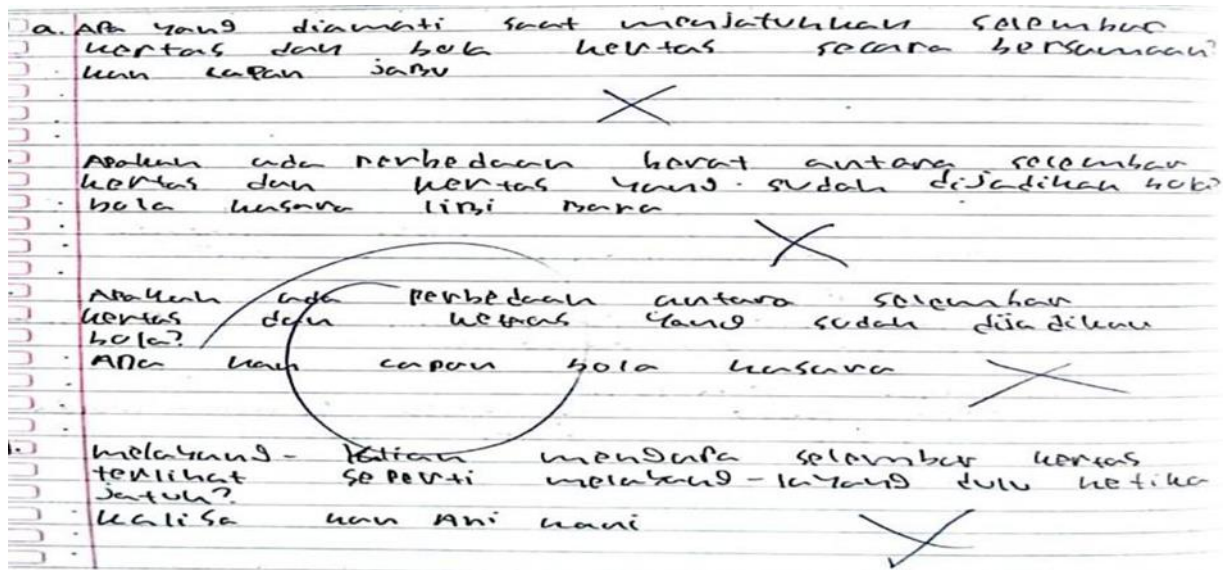 a. Apa yang diamati saat menjatuhkan selembar
kertas dan bola kertas secara bersamaan?
kan capan jaBu
Apakah ada perbedaan berat antara selembar
kertas dan kertas yang sudah dijadikan bola?
bola kusara liBi Bara
Apakah ada perbedaan antara selembar
kertas dan kertas yang sudah dijadikan
bola?
Ana kan capan bola kusara
melayang - kalian mengapa selembar kertas
terlihat seperti melayang-layang dulu ketika
jatuh?
kalisa kan Ani kani